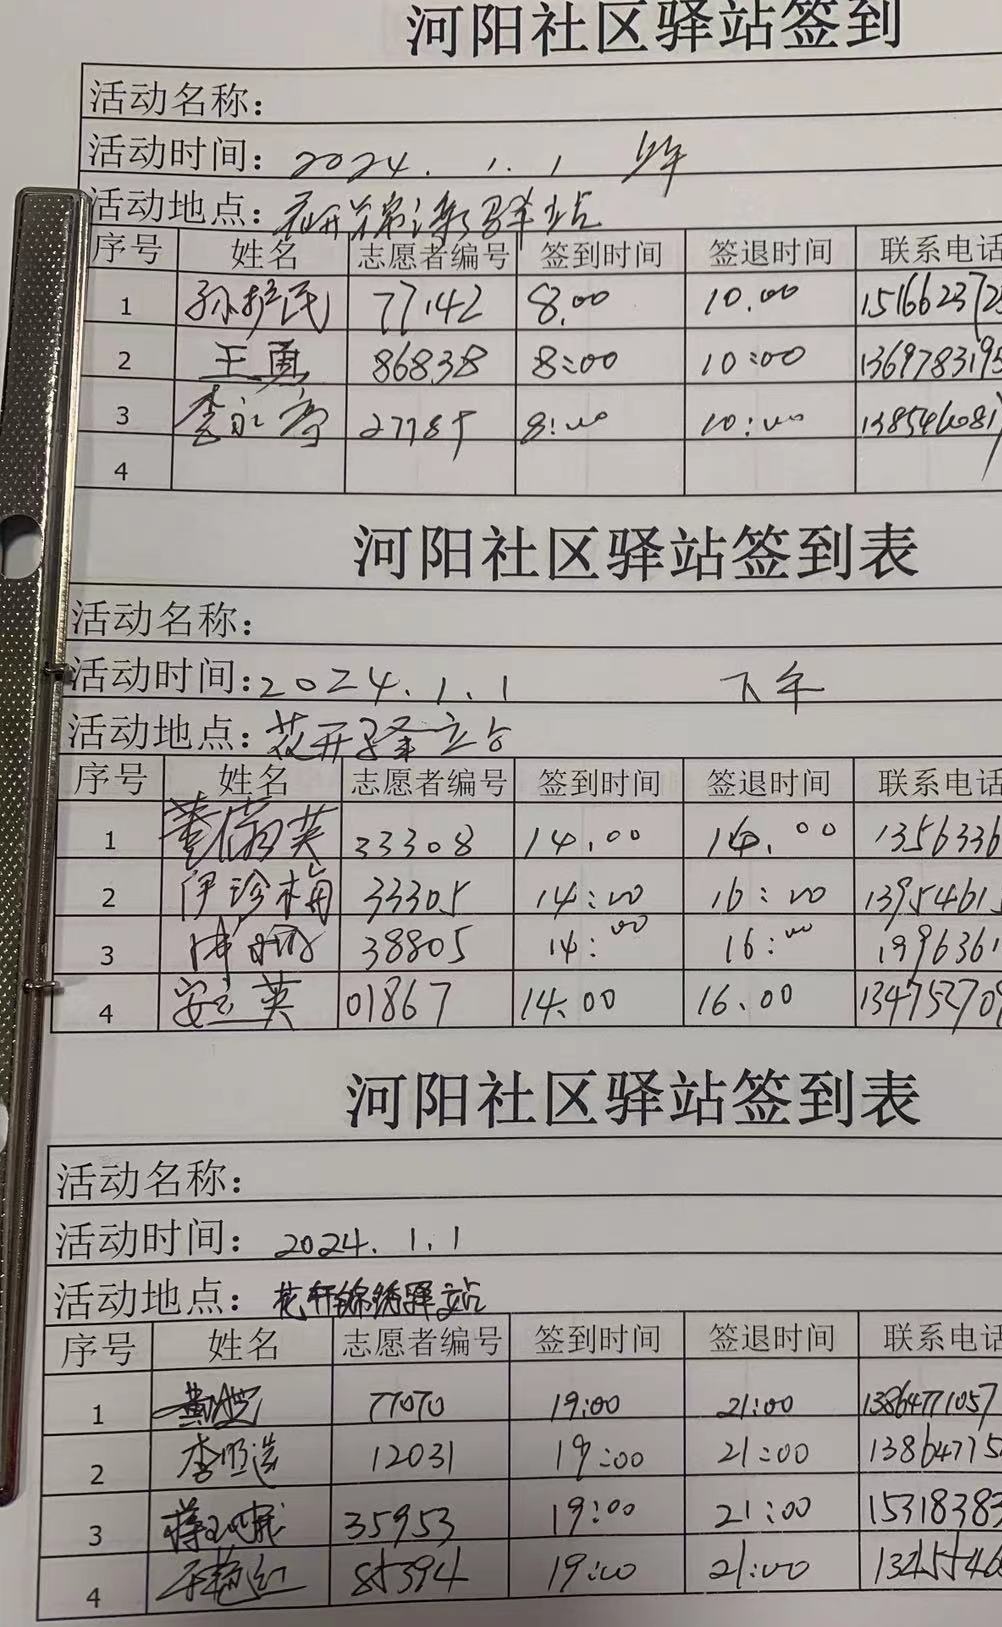 河阳社区驿站签到
活动名称：
活动时间：2024.1.1 上午
活动地点：花开锦绣驿站
序号 姓名 志愿者编号 签到时间 签退时间 联系电话
1 孙护民 77142 8.00 10.00 15166237
2 王勇 86838 8:00 10:00 1369783195
3 李永 27785 8:00 10:00
4
河阳社区驿站签到表
活动名称：
活动时间：2024.1.1 下午
活动地点：花开驿站
序号 姓名 志愿者编号 签到时间 签退时间 联系电话
1 董 英 33308 14.00 16.00 1356336
2 伊珍梅 33305 14:00 16:00 1395461
3 38805 14:00 16:00 1996361
4 安立英 01867 14.00 16.00 134752709
河阳社区驿站签到表
活动名称：
活动时间：2024.1.1
活动地点：花开锦绣驿站
序号 姓名 志愿者编号 签到时间 签退时间 联系电话
1 77070 19:00 21:00 13864771057
2 李明 12031 19:00 21:00 138647715
3 蒋 35953 19:00 21:00 15318383
4 于艳红 85394 19:00 21:00 13455546